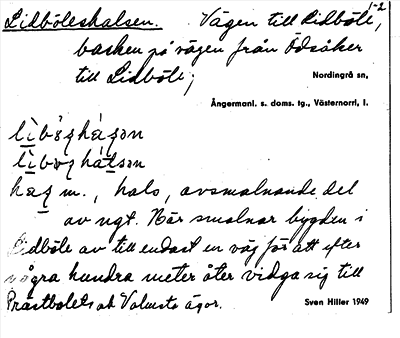 Lidböleshalsen. Vägen till Lidböle, 1-2
backen på vägen från Ödsåker
till Lidböle;
Nordingrå sn,
Ångermanl. s. doms. tg., Västernorrl. l.
m., hals, avsmalnande del
av ngt. Här smalnar bygden i
Lidböle av till endast en väg för att efter
några hundra meter åter vidga sig till
Prästbolets och ägor.
Sven Hiller 1949